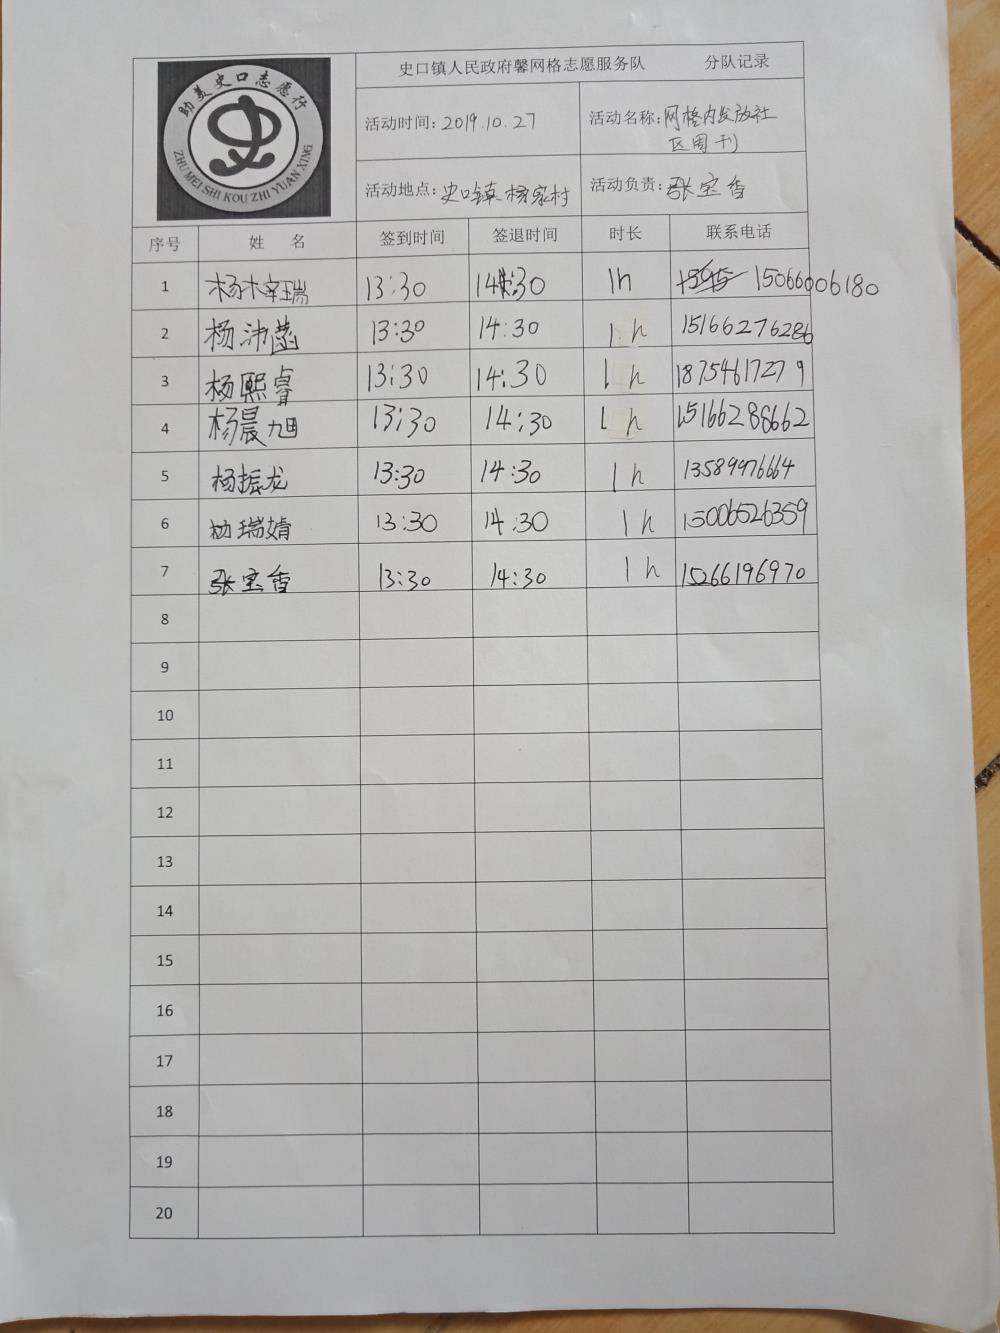 助美史口志愿行
ZHU MEI SHI KOU ZHI YUAN XING
史口镇人民政府馨网格志愿服务队 分队记录
活动时间: 2019.10.27 活动名称: 网格内发放社
区周刊
活动地点: 史口镇杨家村 活动负责: 张宝香
序号 姓 名 签到时间 签退时间 时长 联系电话
1 杨梓瑞 13:30 14:30 1h 15066006180
2 杨沛菡 13:30 14:30 1h 15166276286
3 杨熙睿 13:30 14:30 1h 18754617279
4 杨晨旭 13:30 14:30 1h 15166288662
5 杨振龙 13:30 14:30 1h 13589976664
6 杨瑞婧 13:30 14:30 1h 15006526359
7 张宝香 13:30 14:30 1h 15266196970
8
9
10
11
12
13
14
15
16
17
18
19
20